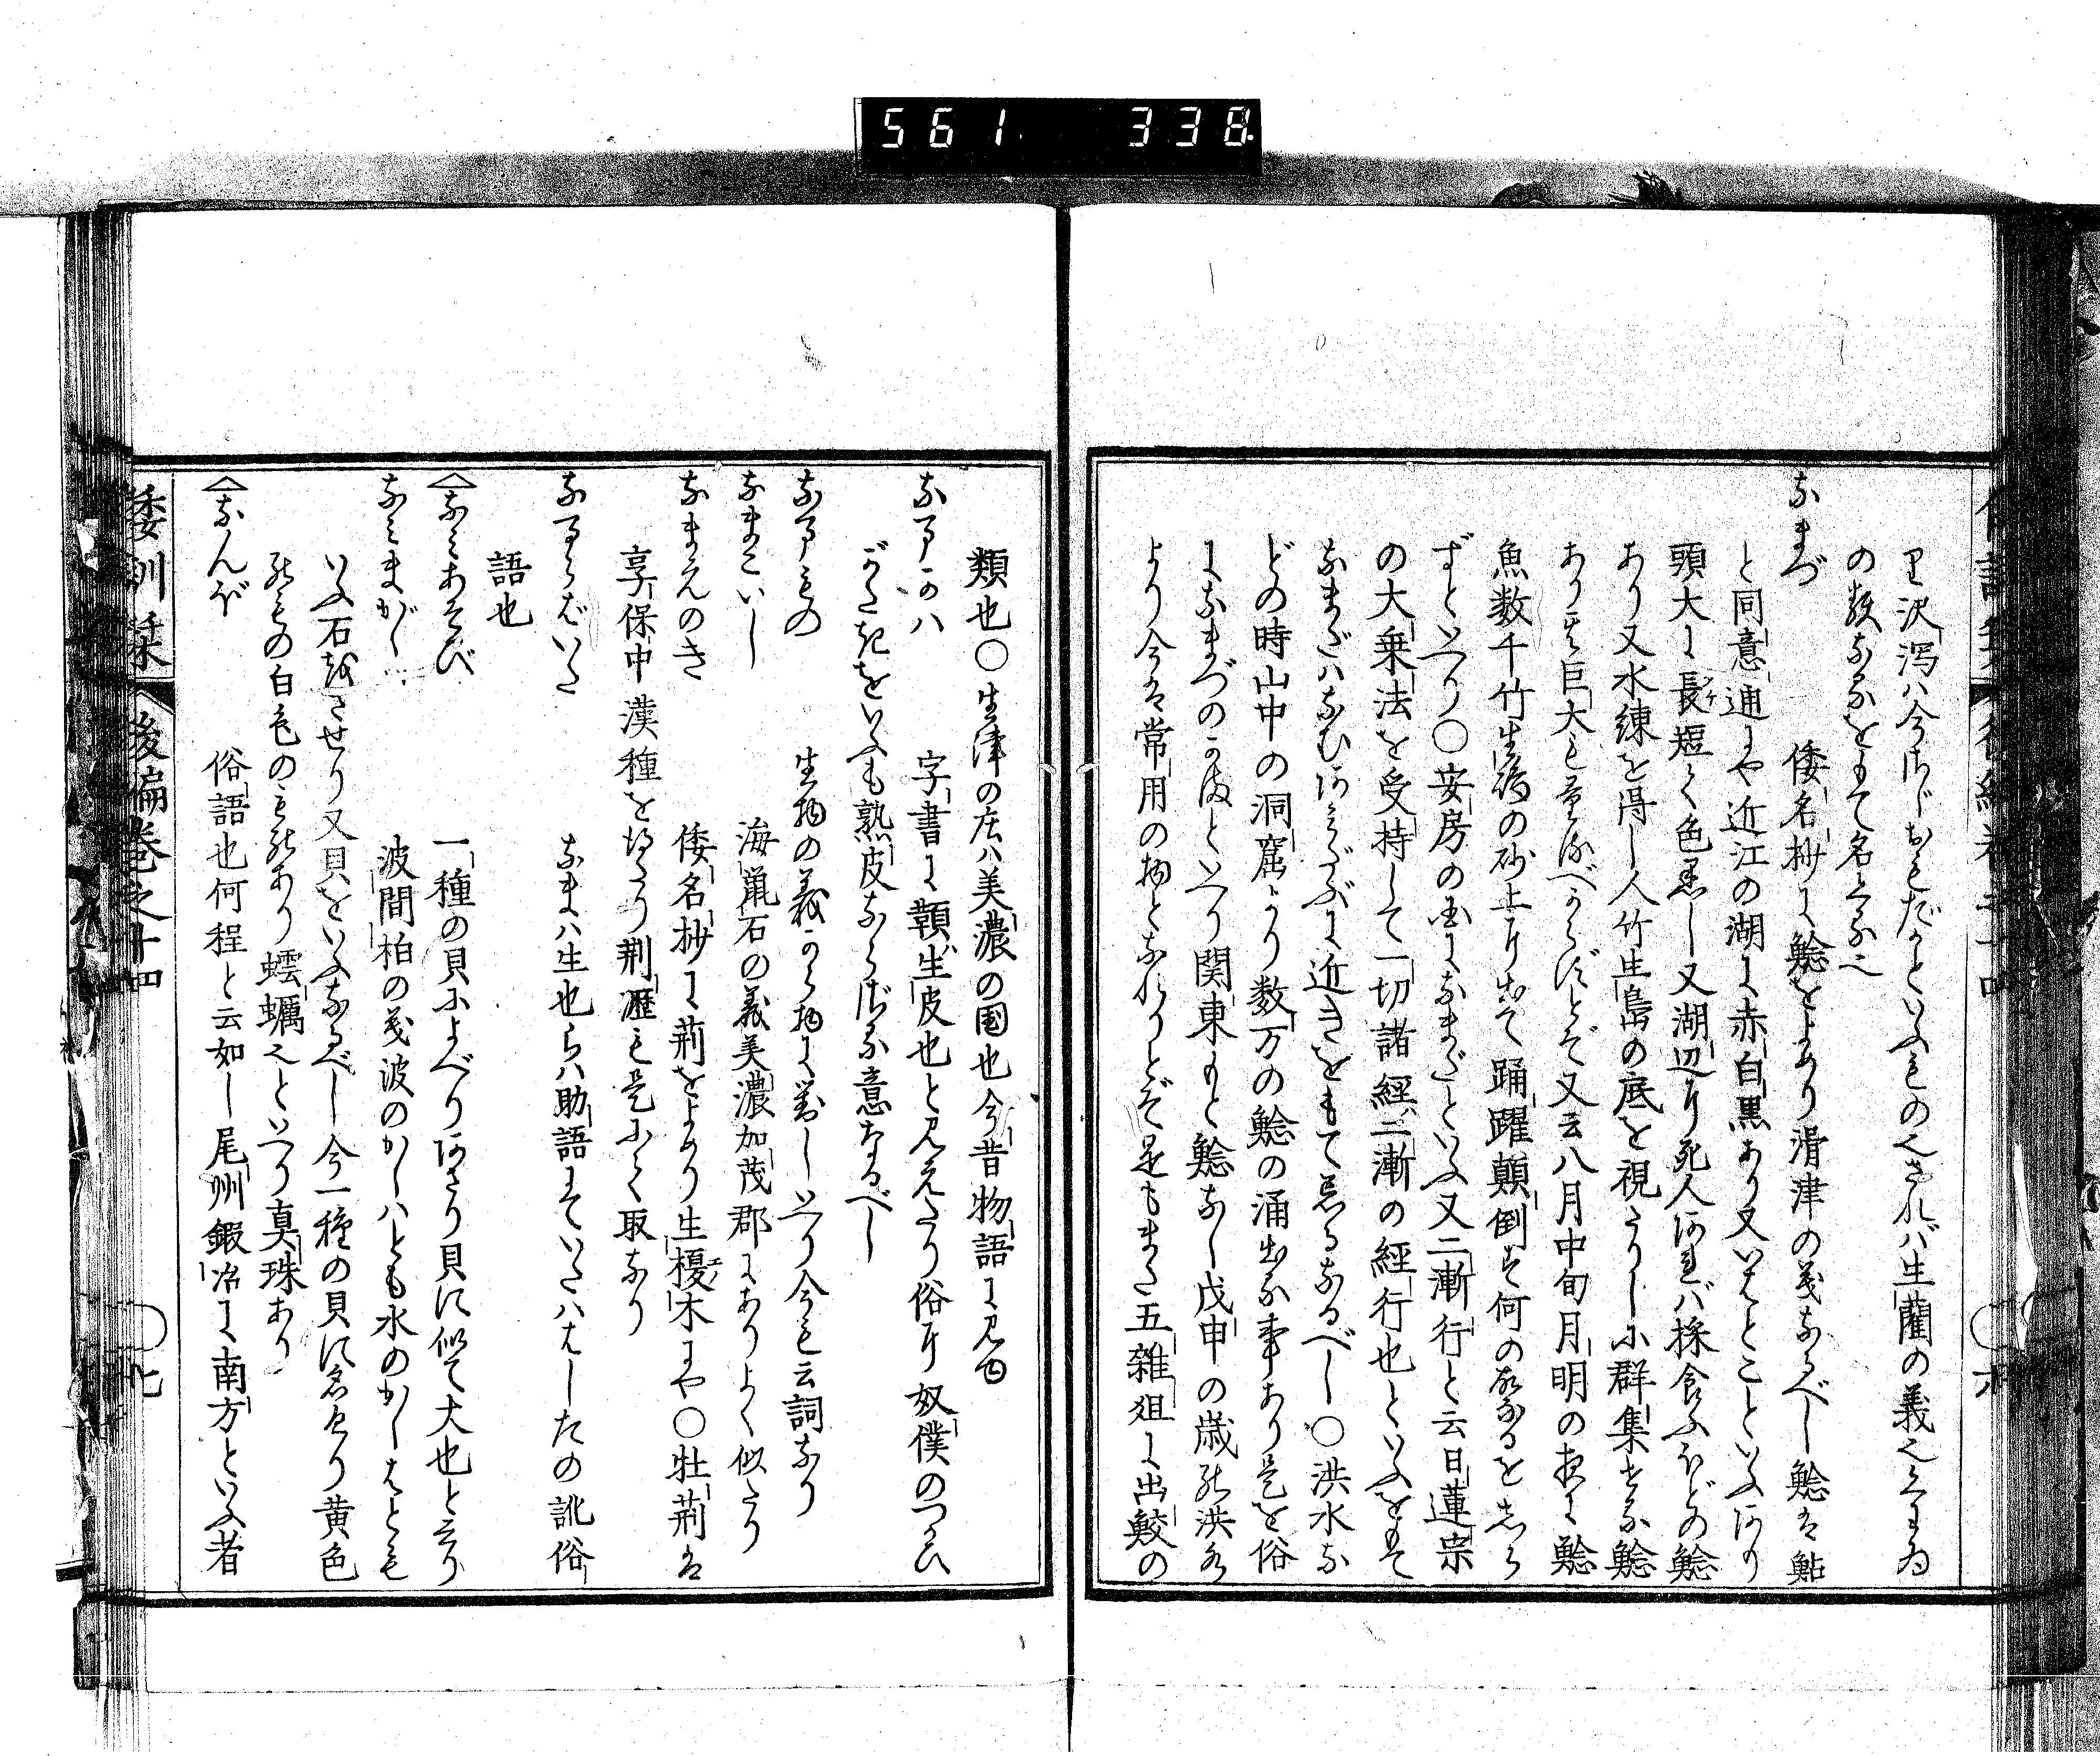 561 338
り沢瀉ハ今おぢおもだかといふものされバ生藺の義也
の類なるをもて名くる也
なまづ 倭名抄に鯰をよめり滑津の義なるべし鯰は鮎
と同意通にや近江の湖に赤白黒あり又いはとこといふあり
頭大に長短く色黒し又湖辺に死人あれバ採食ふほどの鯰
あり又水練を得し人竹生島の底を視たりしに群集せる鯰
あり其巨大も量るべからずとぞ又云八月中旬月明の夜に鯰
魚数千竹生島の砂上に出て踊躍顛倒す何の故なるをしら
ずといへり○安房の国になまだといふ又二漸行と云日蓮宗
の大乗法を受持して一切諸経二漸の経行也といふをもて
なまだハなむあみだぶに近きをもて忌るなるべし○洪水な
どの時山中の洞窟より数万の鯰の涌出る事あり是を俗
になまづのかはといへり関東もと鯰なし戊申の歳の洪水
より今は常用の物となれりとぞ是もまた五雑俎に出鮫の
類也○生津の庄ハ美濃の国也今昔物語に見ゆ
なまかハ 字書に䩞生皮也と見えたり俗に奴僕のつかひ
がたきをいふも熟皮ならざる意なるべし
なまもの 生物の義から物に対しいへり今も云詞なり
なまこいし 海鼠石の義美濃加茂郡にありよく似たり
なまえのき 倭名抄に荊をよめり生榎木にや○牡荊は
享保中漢種を得たり荊瀝も是にて取なり
なまらはいた なまハ生也らハ助語にていたハはしたの訛俗
語也
なみあそび 一種の貝によべりあさり貝に似て大也と云り
なみまがしハ 波間柏の義波のかしハとも水のかしはとも
いふ石をさせり又貝をいふなるべし今一種の貝に名けり黄色
のもの白色のものあり蠕蠣也といへり真珠あり
なんぼ 俗語也何程と云如し尾州鍜冶に南方といふ者
倭訓栞 後編巻之十四 七